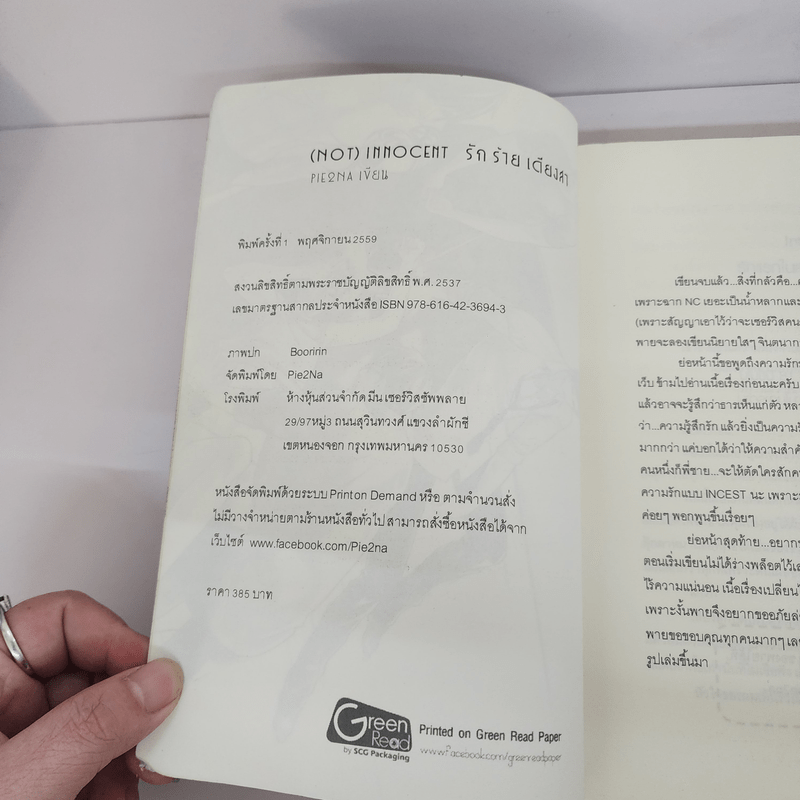 (NOT) INNOCENT รัก ร้าย เดียงสา
PIE2NA เขียน
พิมพ์ครั้งที่ 1 พฤศจิกายน 2559
สงวนลิขสิทธิ์ตามพระราชบัญญัติลิขสิทธิ์ พ.ศ. 2537
เลขมาตรฐานสากลประจำหนังสือ ISBN 978-616-42-3694-3
ภาพปก Booririn
จัดพิมพ์โดย Pie2Na
โรงพิมพ์ ห้างหุ้นส่วนจำกัด มีน เซอร์วิสซัพพลาย
29/97หมู่3 ถนนสุวินทวงศ์ แขวงลำผักชี
เขตหนองจอก กรุงเทพมหานคร 10530
หนังสือจัดพิมพ์ด้วยระบบ Printon Demand หรือ ตามจำนวนสั่ง
ไม่มีวางจำหน่ายตามร้านหนังสือทั่วไป สามารถสั่งซื้อหนังสือได้จาก
เว็บไซต์ www.facebook.com/Pie2na
ราคา 385 บาท
Green
Read
by SCG Packaging
Printed on Green Read Paper
www.facebook.com/greenreadpaper
เขียนจบแล้ว...สิ่งที่กลัวคือ...
เพราะฉาก NC เยอะเป็นน้ำหลากและ
(เพราะสัญญาเอาไว้ว่าจะเซอร์วิสคน
พายจะลองเขียนนิยายใสๆ จินตนาก
ย่อหน้านี้ขอพูดถึงความรัก
เว็บ ข้ามไปอ่านเนื้อเรื่องก่อนนะครับ
แล้วอาจจะรู้สึกว่าธารเห็นแก่ตัว หล
ว่า...ความรู้สึกรัก แล้วยิ่งเป็นความรั
มากกว่า แค่บอกได้ว่าให้ความสำคั
คนหนึ่งก็พี่ชาย...จะให้ตัดใครสักค
ความรักแบบ INCEST นะ เพราะ
ค่อยๆ พอกพูนขึ้นเรื่อยๆ
ย่อหน้าสุดท้าย...อยาก
ตอนเริ่มเขียนไม่ได้ร่างพล็อตไว้เล
ไร้ความแน่นอน เนื้อเรื่องเปลี่ยน
เพราะงั้นพายจึงอยากขออภัย
พายขอขอบคุณทุกคนมากๆ เล
รูปเล่มขึ้นมา